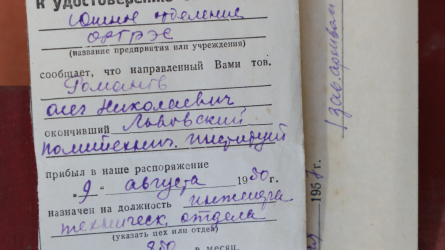 к удостоверению
Южное отделение
ОРГРЭС
(название предприятия или учреждения)
сообщает, что направленный Вами тов.
Романов
Олег Николаевич
окончивший Львовский
политехнич. институт
прибыл в наше распоряжение
"9" августа 1950 г.
назначен на должность инженера
техническ. отдела
(указать цех или отдел)
850 в месяц
195 г.
/зав. архивом